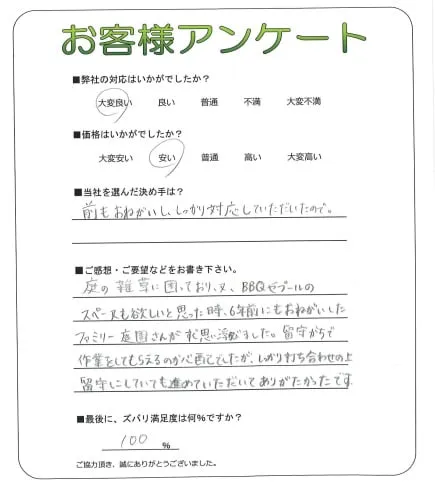 お客様アンケート
■弊社の対応はいかがでしたか？
大変良い 良い 普通 不満 大変不満
■価格はいかがでしたか？
大変安い 安い 普通 高い 大変高い
■当社を選んだ決め手は？
前もおねがいし、しっかり対応していただいたので。
■ご感想・ご要望などをお書き下さい。
庭の雑草に困っており、又、BBQやプールの
スペースも欲しいと思った時、6年前にもおねがいした
ファミリー庭園さんが 思い浮びました。留守がちで
作業をしてもらえるのか心配でしたが、しっかり打ち合わせの上
留守にしていても進めていただいてありがたかったです
■最後に、ズバリ満足度は何％ですか？
100 ％
ご協力頂き、誠にありがとうございました。